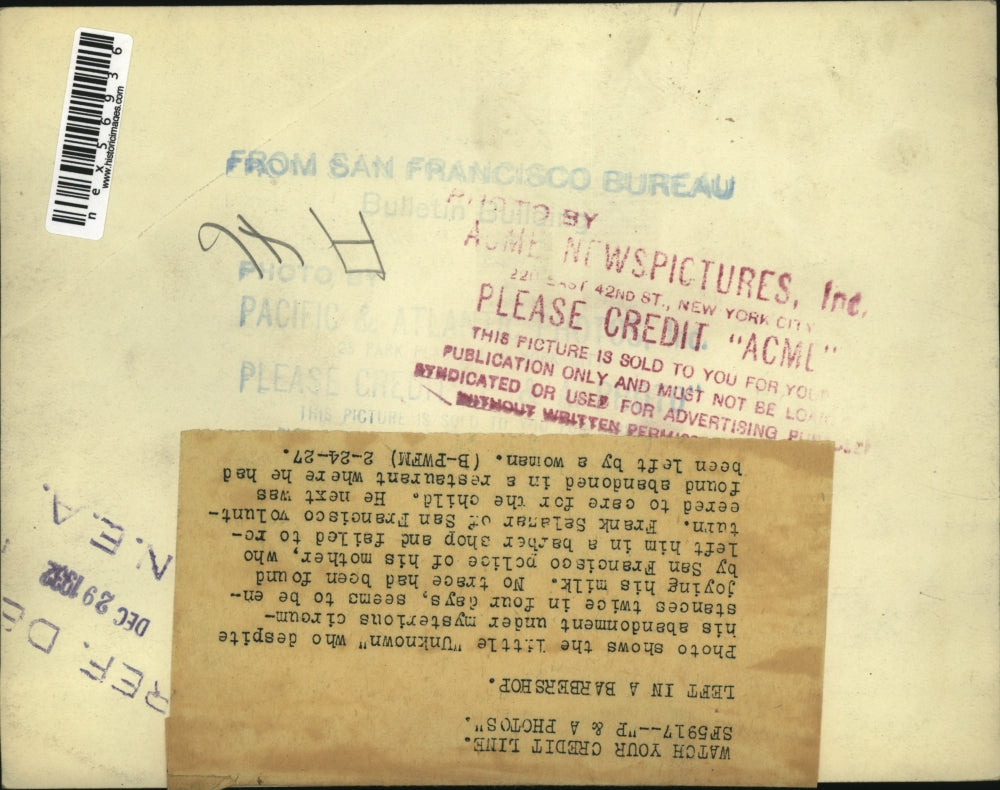 nex56936
www.historicimages.com
FROM SAN FRANCISCO BUREAU
Bulletin Building
PHOTO BY
PACIFIC & ATLANTIC PHOTOS, Inc.
25 PARK
PLEASE CREDIT
THIS PICTURE IS SOLD TO
PHOTO BY
ACME NEWSPICTURES, Inc.
220 EAST 42ND ST., NEW YORK CITY
PLEASE CREDIT "ACME"
THIS PICTURE IS SOLD TO YOU FOR YOUR
PUBLICATION ONLY AND MUST NOT BE LOANED
SYNDICATED OR USED FOR ADVERTISING PURPOSES
WITHOUT WRITTEN PERMISSION
WATCH YOUR CREDIT LINE.
SF5917--"P & A PHOTOS".
LEFT IN A BARBERSHOP.
Photo shows the little "Unknown" who despite
his abandonment under mysterious circum-
stances twice in four days, seems to be en-
joying his milk. No trace had been found
by San Francisco police of his mother, who
left him in a barber shop and failed to re-
turn. Frank Salazar of San Francisco volunt-
eered to care for the child. He next was
found abandoned in a restaurant where he had
been left by a woman. (B-PWFM) 2-24-27.
REF. DE
DEC 29 1932
N.E.A.